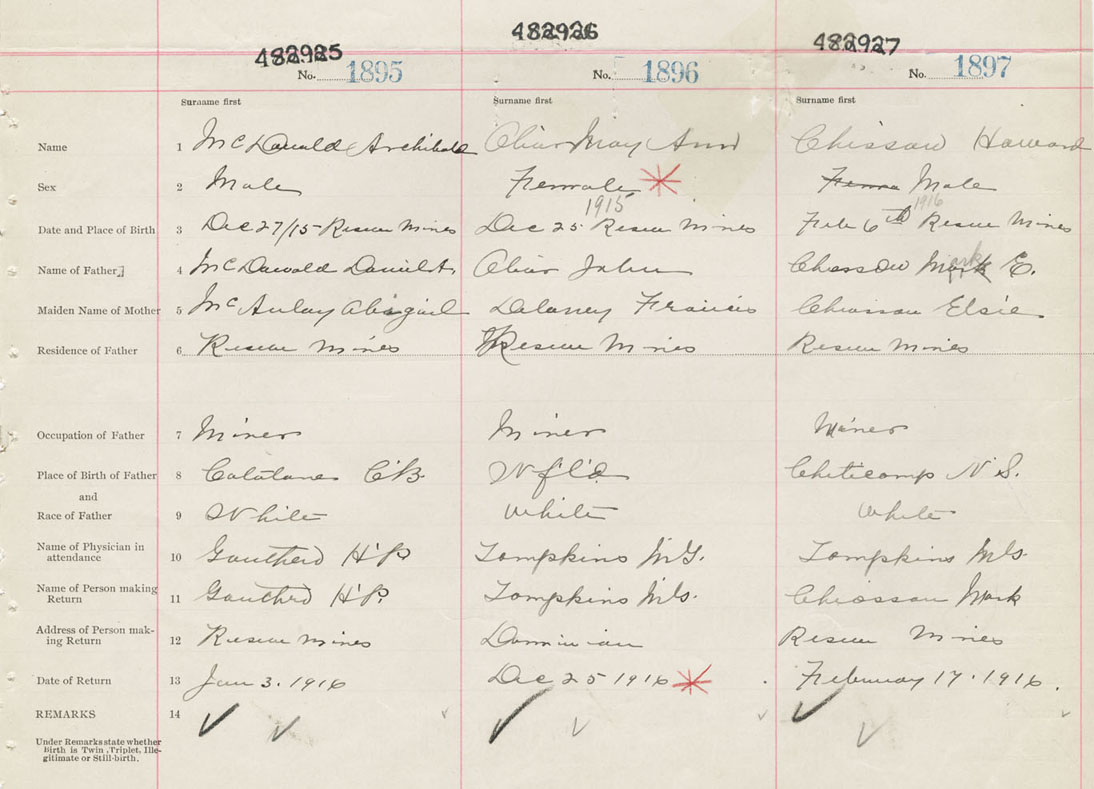 482925 482926 482927
No. 1895 No. 1896 No. 1897
Surname first Surname first Surname first
Name 1 McDonald Archibald Oliver May Ann Chissow Howard
Sex 2 Male Female Fema Male
1915 1916
Date and Place of Birth 3 Dec 27/15 Reserve Mines Dec 25 Reserve Mines Feb 6th Reserve Mines
Name of Father 4 McDonald Daniel A. John Mark E.
Maiden Name of Mother 5 McAulay Abigail Delaney Francis Chiasson Elsie
Residence of Father 6 Reserve Mines Reserve Mines Reserve Mines
Occupation of Father 7 Miner Miner Miner
Place of Birth of Father 8 Catalone C.B. Nfld Cheticamp N.S.
and
Race of Father 9 White White White
Name of Physician in
attendance 10 H.P. Tompkins M.G. Tompkins
Name of Person making
Return 11 H.P. Tompkins Chiasson Mark
Address of Person mak-
ing Return 12 Reserve Mines Dominion Reserve Mines
Date of Return 13 Jan 3. 1916 Dec 25 1916 February 17. 1916.
REMARKS 14
Under Remarks state whether
Birth is Twin, Triplet, Ille-
gitimate or Still-birth.